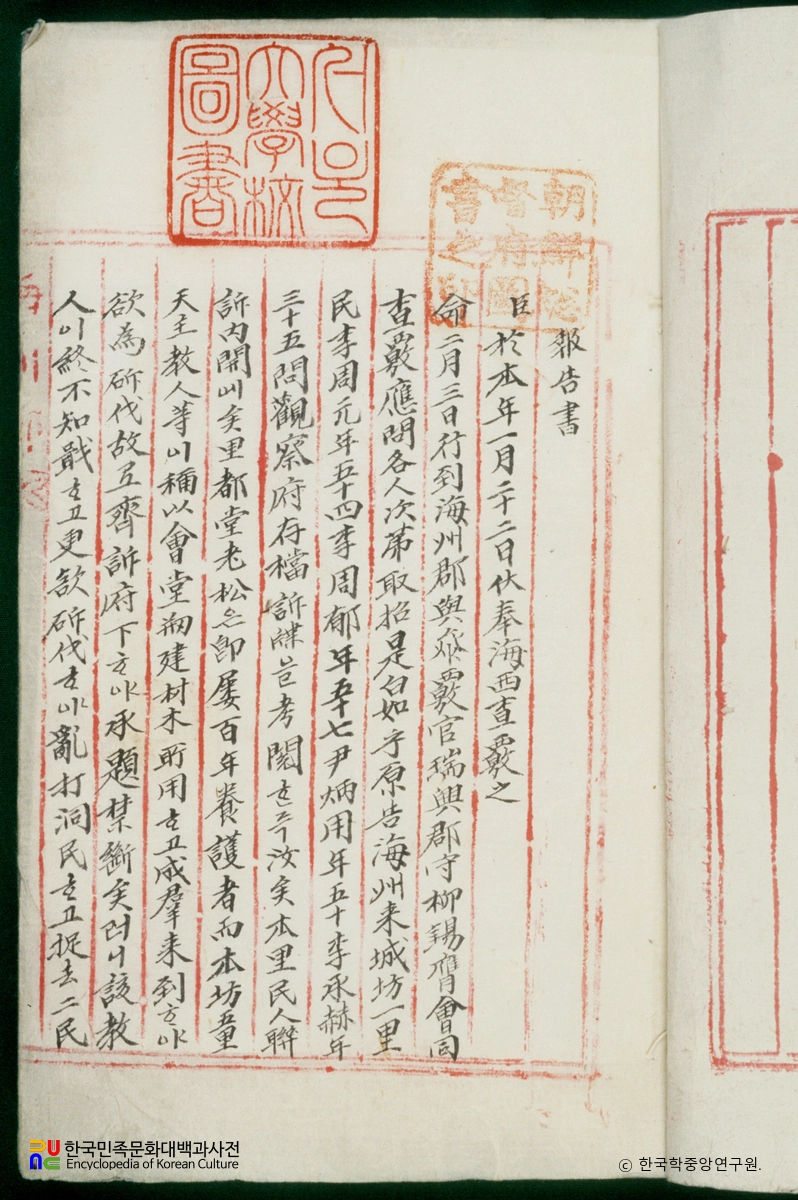 報告書
臣於本年一月二十二日伏奉海西査覈之
命二月三日行到海州郡與參覈官瑞興郡守柳錫膺會同
査覈應問各人次第取招是白如乎原告海州来城坊一里
民李周元年五十四李周郁年五十七尹炳用年五十李承赫年
三十五問觀察府存檔訴牒을考閱호즉汝矣本里民人聯
訴內開에矣里都堂老松은卽屡百年養護者而本坊
天主教人等이稱以會堂刱建材木所用호고成羣来到호야
欲為斫伐故互齊訴府下호야承題禁斷矣러니該教
人이終不知戢호고更欲斫伐호야亂打洞民호고捉去二民
朝鮮總
督府圖
書之印
大學校
圖書
한국민족문화대백과사전
Encyclopedia of Korean Culture
ⓒ 한국학중앙연구원.